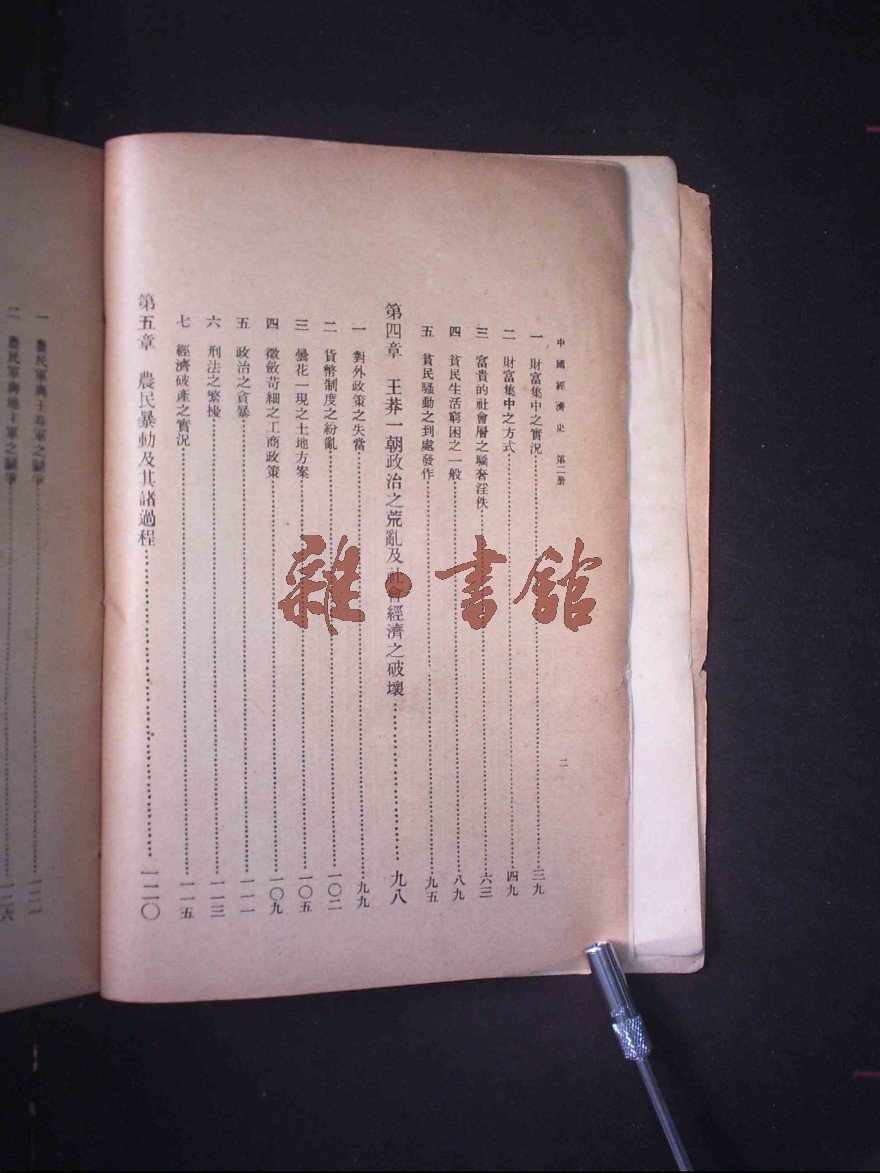 中國經濟史 第二册
二
一 財富集中之實況……三九
二 財富集中之方式……四九
三 富貴的社會層之驕奢淫佚……六三
四 貧民生活窮困之一般……八九
五 貧民騷動之到處發作……九五
第四章 王莽一朝政治之荒亂及社會經濟之破壞……九八
一 對外政策之失當……九九
二 貨幣制度之紛亂……一〇二
三 曇花一現之土地方案……一〇五
四 徵斂苛細之工商政策……一〇九
五 政治之貪暴……一一一
六 刑法之繁擾……一一三
七 經濟破產之實況……一一五
第五章 農民暴動及其諸過程……一二〇
一 農民軍與王莽軍之……一二一
二 農民軍與地主軍之……一二六
雜·書館